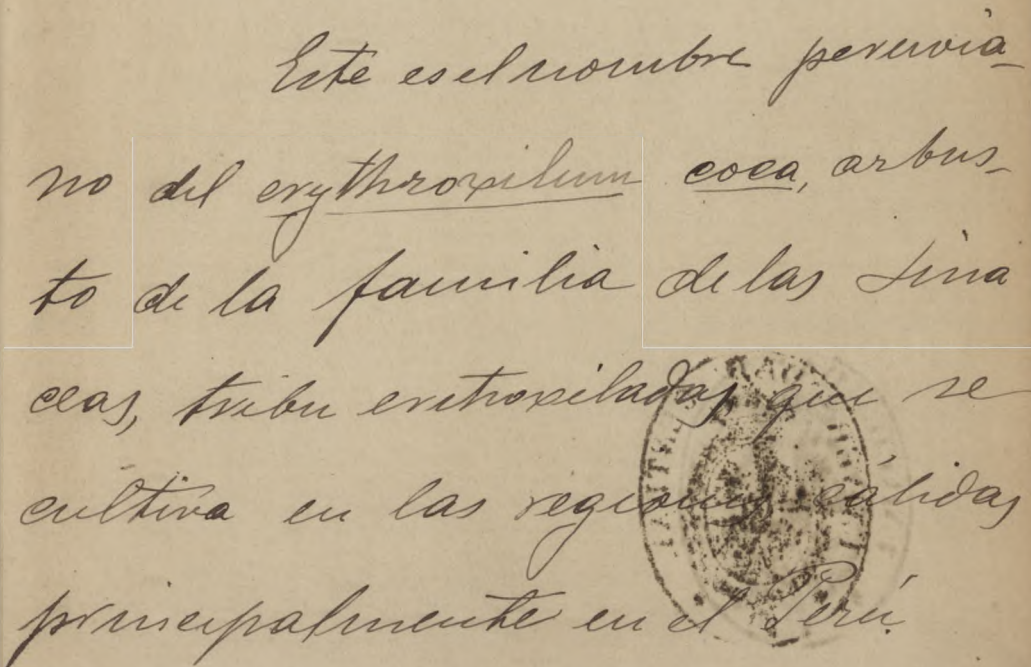 Este es el nombre peruvia-
no del erythroxilum coca, arbus-
to de la familia de las Lina
ceas, tribu eritroxiladas, que se
cultiva en las regiones cálidas
principalmente en el Perú.